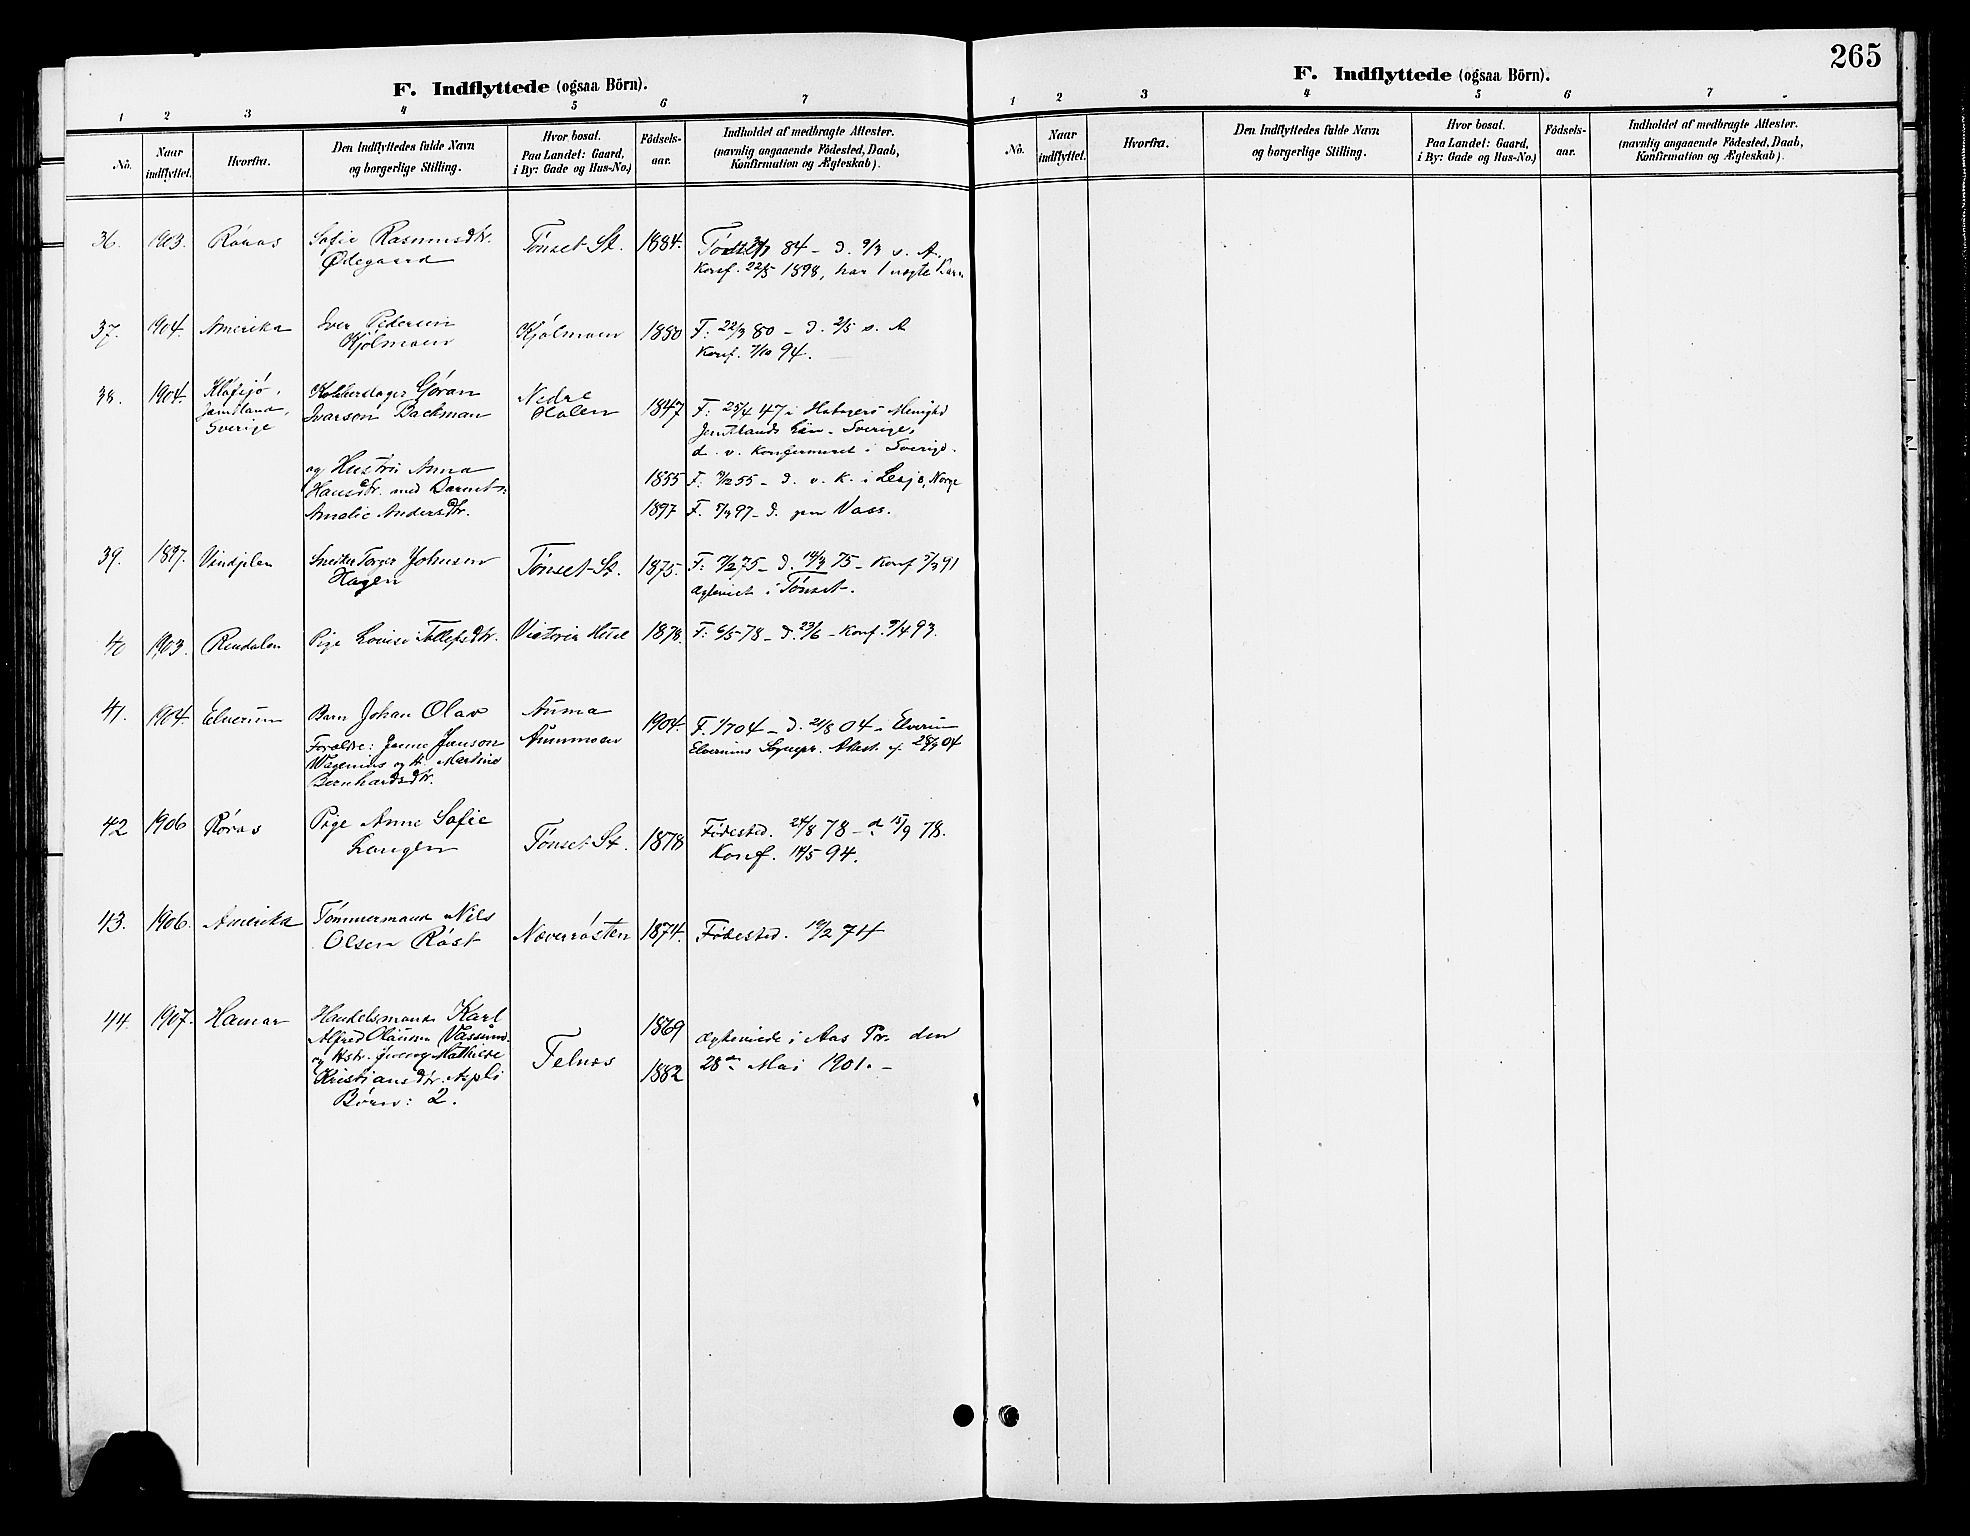 265
F. Indflyttede (ogsaa Börn).
1 2 3 4 5 6 7
No.
Naar indflyttet.
Hvorfra.
Den Indflyttedes fulde Navn og borgerlige Stilling.
Hvor bosat.
Paa Landet: Gaard,
i By: Gade og Hus-No.)
Födsels-
aar.
Indholdet af medbragte Attester.
(navnlig angaaende Födested, Daab,
Konfirmation og Ægteskab).
36. 1903. Røros Sofie Rasmusdtr. Tønset St. 1884. 84 - d. 9/3 s. A.
Ødegaard Konf. 22/5 1898, har 1 uægte Barn
37. 1904. Amerika Iver Pedersen Kjølmoen 1880 F: 22/3 80 - d. 2/5 s. A
Kjølmoen Konf. 7/10 94.
38. 1904. Klöfsjö, Göran Nedre 1847 F: 25/4 47 i
Jemtland, Ivarson Backman Holen Jemtlands Län - Sverige,
Sverige d. v. konfirmeret i Sverige.
og Hustru Anna 1855 F. 55 - d. v. k. i Lesje, Norge
Hansdtr. med Barnet: 1897 F. 97 - d. Vass.
Amalie Andersdtr.
39. 1897. Snedker Torger Johnsen Tønset-St. 1875. F: 75 - d. 14/3 75 - Konf 91
Hagen i Tønset.
40 1903. Rendalen Pige Lovise Tollefsdtr. Victoria Hotel 1878. F: 6/5 78 - d. 23/6 - Konf. 9/4 93.
41. 1904. Elverum Barn Johan Olav Auma 1904. F. 1/7 04 - d. 21/8 04 - Elverum
Forældre: Janne Janson Aummoen Elverums Sognepr. Attest af 28/9 04
Wagenius og H. Martine
Bernhardsdtr.
42 1906 Røros Pige Anne Sofie Tønset St. 1878 Fødested. 24/8 78 - d 15/9 78.
Langen Konf. 14/5 94.
43. 1906. Amerika Tømmermand Nils Næverrøsten 1874. Fødested. 10/2 74
Olsen Røst
44. 1907. Hamar Handelsmand Karl Telnes 1869 Ægteviede i Aas Pr. den
Alfred Olausen 1882 28de Mai 1901. -
og Hstr. Jenny Mathilde
Kristiansdtr. Aspli
Børn: 2.
F. Indflyttede (ogsaa Börn).
1 2 3 4 5 6 7
No.
Naar indflyttet.
Hvorfra.
Den Indflyttedes fulde Navn og borgerlige Stilling.
Hvor bosat.
Paa Landet: Gaard,
i By: Gade og Hus-No.)
Födsels-
aar.
Indholdet af medbragte Attester.
(navnlig angaaende Födested, Daab,
Konfirmation og Ægteskab).